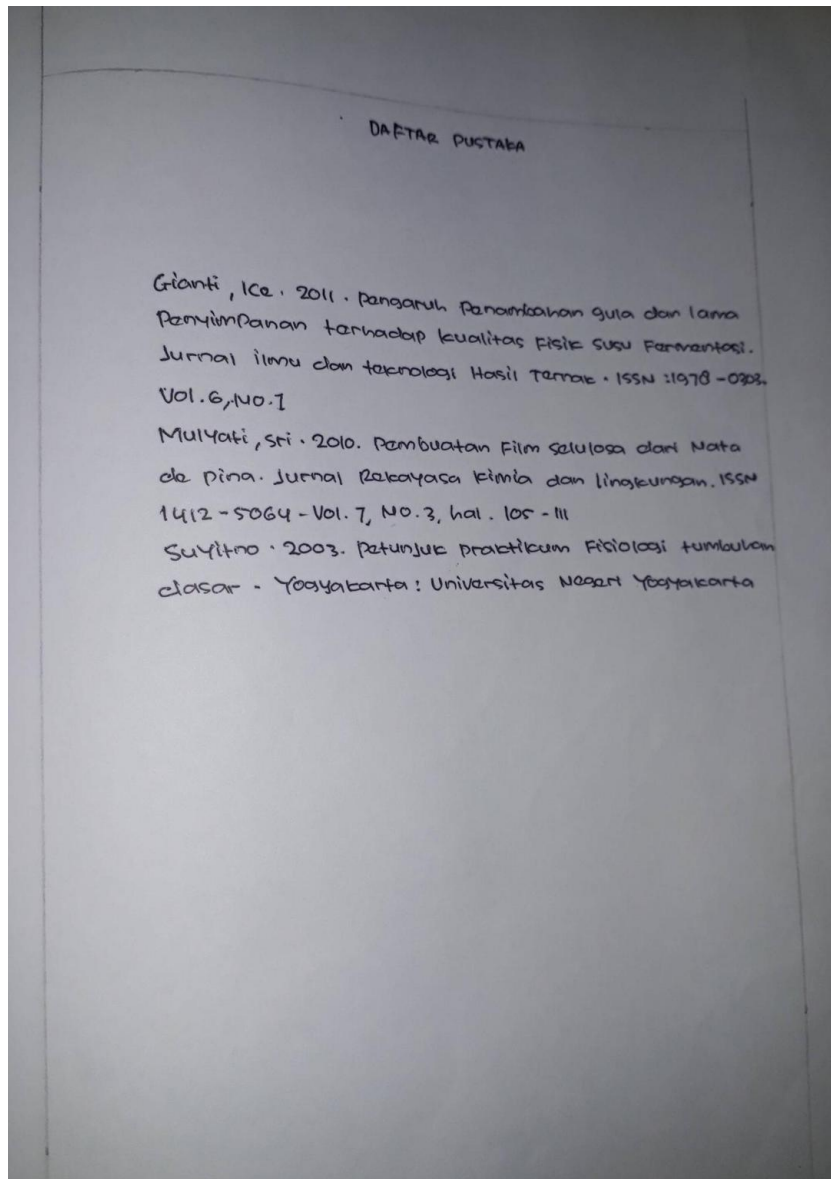 DAFTAR PUSTAKA
Gianti, Ice. 2011. Pengaruh Penambahan gula dan lama
Penyimpanan terhadap kualitas Fisik Susu Fermentasi.
Jurnal ilmu dan teknologi Hasil Ternak. ISSN :1978-0303.
Vol.6, No.1
Mulyati, Sri. 2010. Pembuatan Film Selulosa dari Nata
de pina. Jurnal Rekayasa kimia dan lingkungan. ISSN
1412-5064-Vol.7, No.3, hal. 105-111
Suyitno. 2003. Petunjuk praktikum Fisiologi tumbuhan
dasar - Yogyakarta: Universitas Negeri Yogyakarta